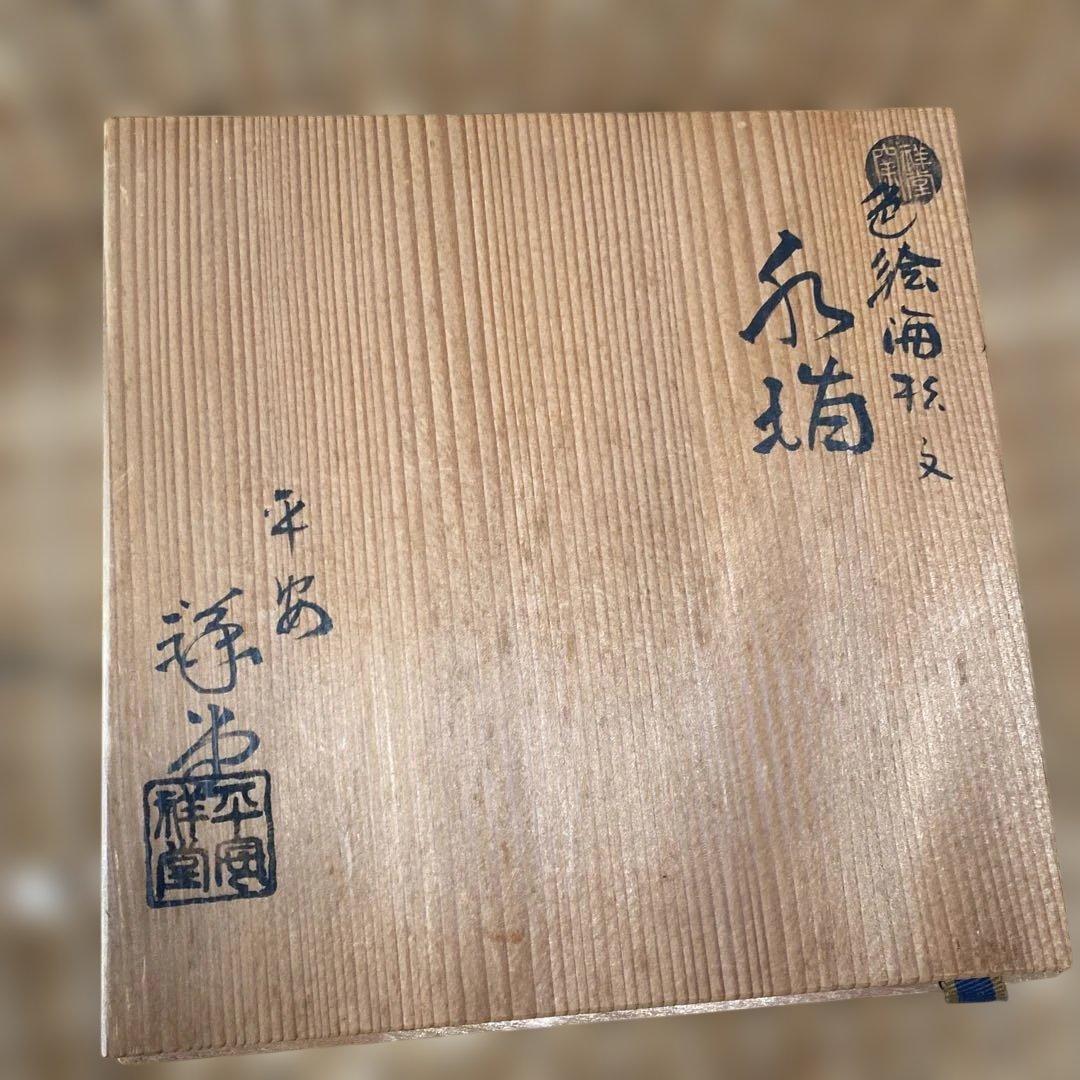 祥堂窯
色絵海松文
水指
平安
祥堂
平安祥堂